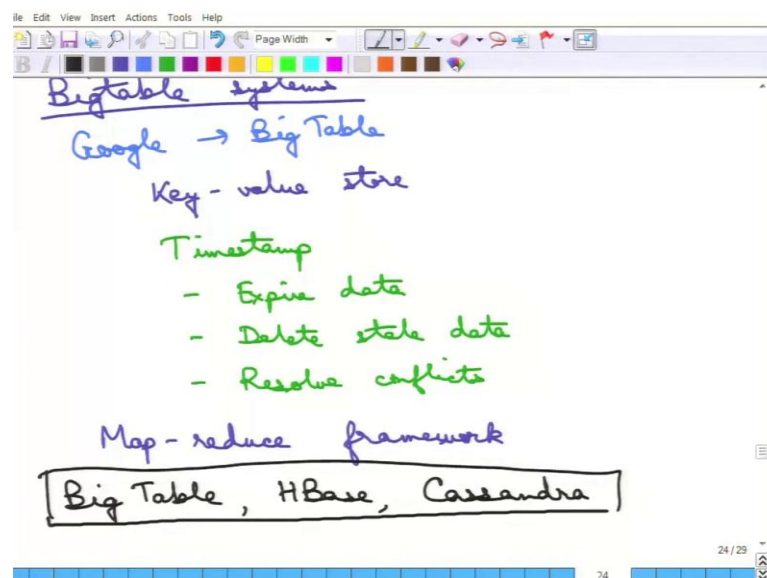 ile Edit View Insert Actions Tools Help
Page Width
B I
Bigtable systems
Google → Big Table
Key - value store
Timestamp
- Expire data
- Delete stale data
- Resolve conflicts
Map - reduce framework
Big Table, HBase, Cassandra
24 / 29
24